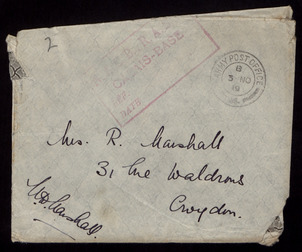 2
BASE
ARMY POST OFFICE
8
3 NO
Mrs. R. Marshall
31, The Waldrons
Croydon.
Marshall.